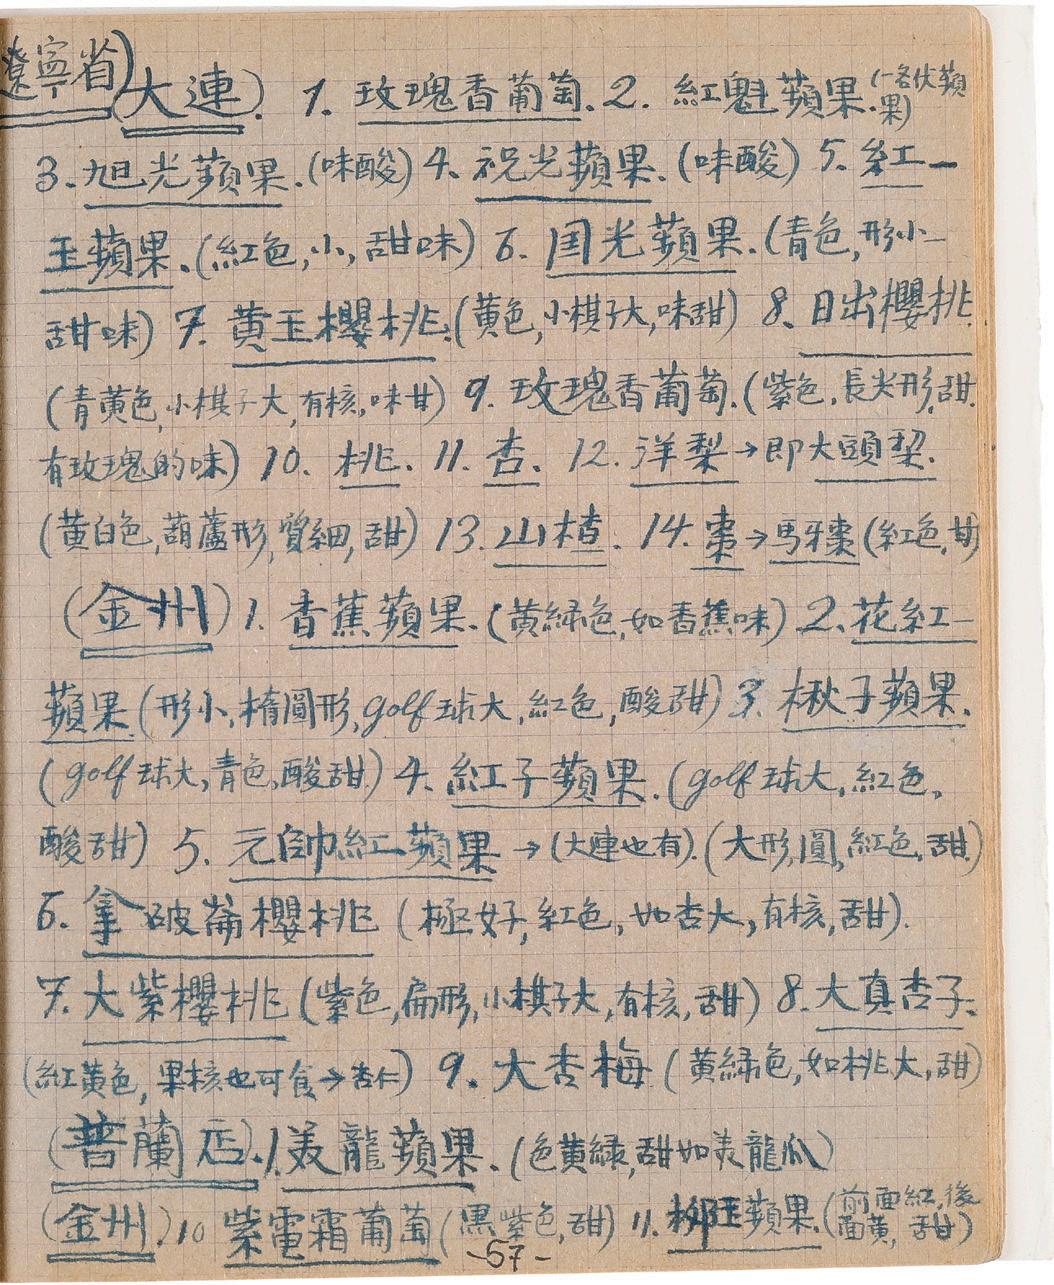 遼寧省)(大連). 1. 玫瑰香葡萄. 2. 紅魁蘋果.(一名伏蘋果)
3. 旭光蘋果.(味酸) 4. 祝光蘋果.(味酸) 5. 紅一
玉蘋果.(紅色,小,甜味) 6. 国光蘋果.(青色,形小—
甜味) 7. 黄玉櫻桃.(黄色,小棋子大,味甜) 8. 日出櫻桃.
(青黄色,小棋子大,有核,味甘) 9. 玫瑰香葡萄.(紫色,長尖形,甜.
有玫瑰的味) 10. 桃. 11. 杏. 12. 洋梨→即大頭梨.
(黄白色,葫蘆形,質細,甜) 13. 山楂. 14. 棗→馬牙棗(紅色,甘)
(金州) 1. 香蕉蘋果.(黄綠色,如香蕉味) 2. 花紅—
蘋果(形小,橢圓形,golf球大,紅色,酸甜) 3. 楸子蘋果.
(golf球大,青色,酸甜) 4. 紅子蘋果.(golf球大,紅色,
酸甜) 5. 元帥紅蘋果→(大連也有).(大形,圓,紅色,甜.)
6. 拿破崙櫻桃(極好,紅色,如杏大,有核,甜).
7. 大紫櫻桃(紫色,扁形,小棋子大,有核,甜) 8. 大真杏子.
(紅黄色,果核也可食→杏仁) 9. 大杏梅(黄綠色,如桃大,甜)
(普蘭店). 1. 美龍蘋果.(色黄綠,甜如美龍瓜)
(金州) 10 紫電霜葡萄(黒紫色,甜) 11. 柳玉蘋果.(前面紅,後面黄,甜)
-57-